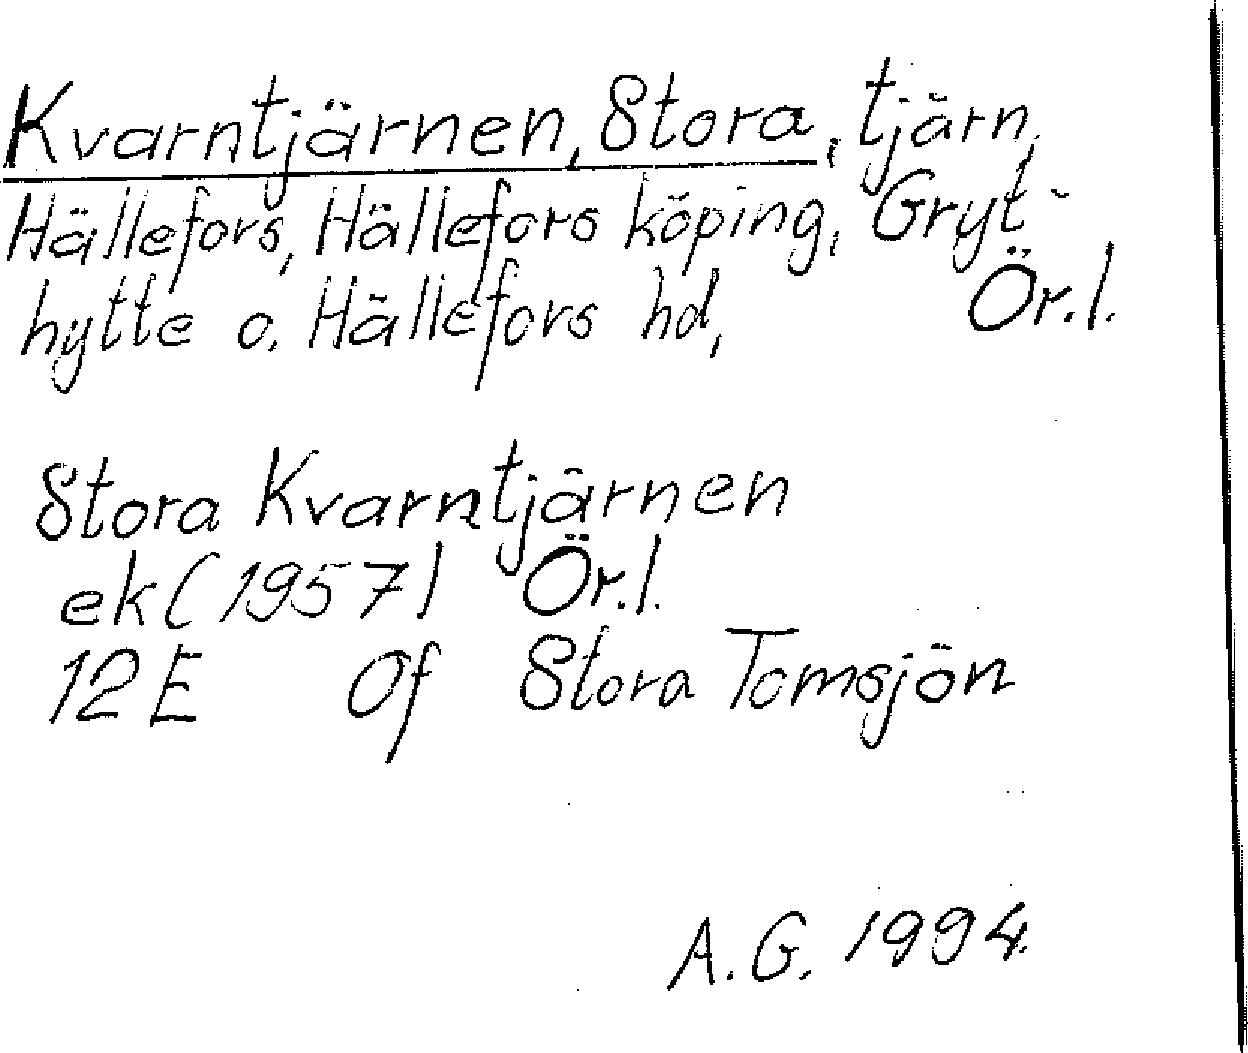 Kvarntjärnen, Stora, tjärn,
Hällefors, Hällefors köping, Gryt-
hytte o. Hällefors hd, Ör.l.
Stora Kvarntjärnen
ek (1957) Ör.l.
12E Of Stora Tomsjön
A.G. 1994.